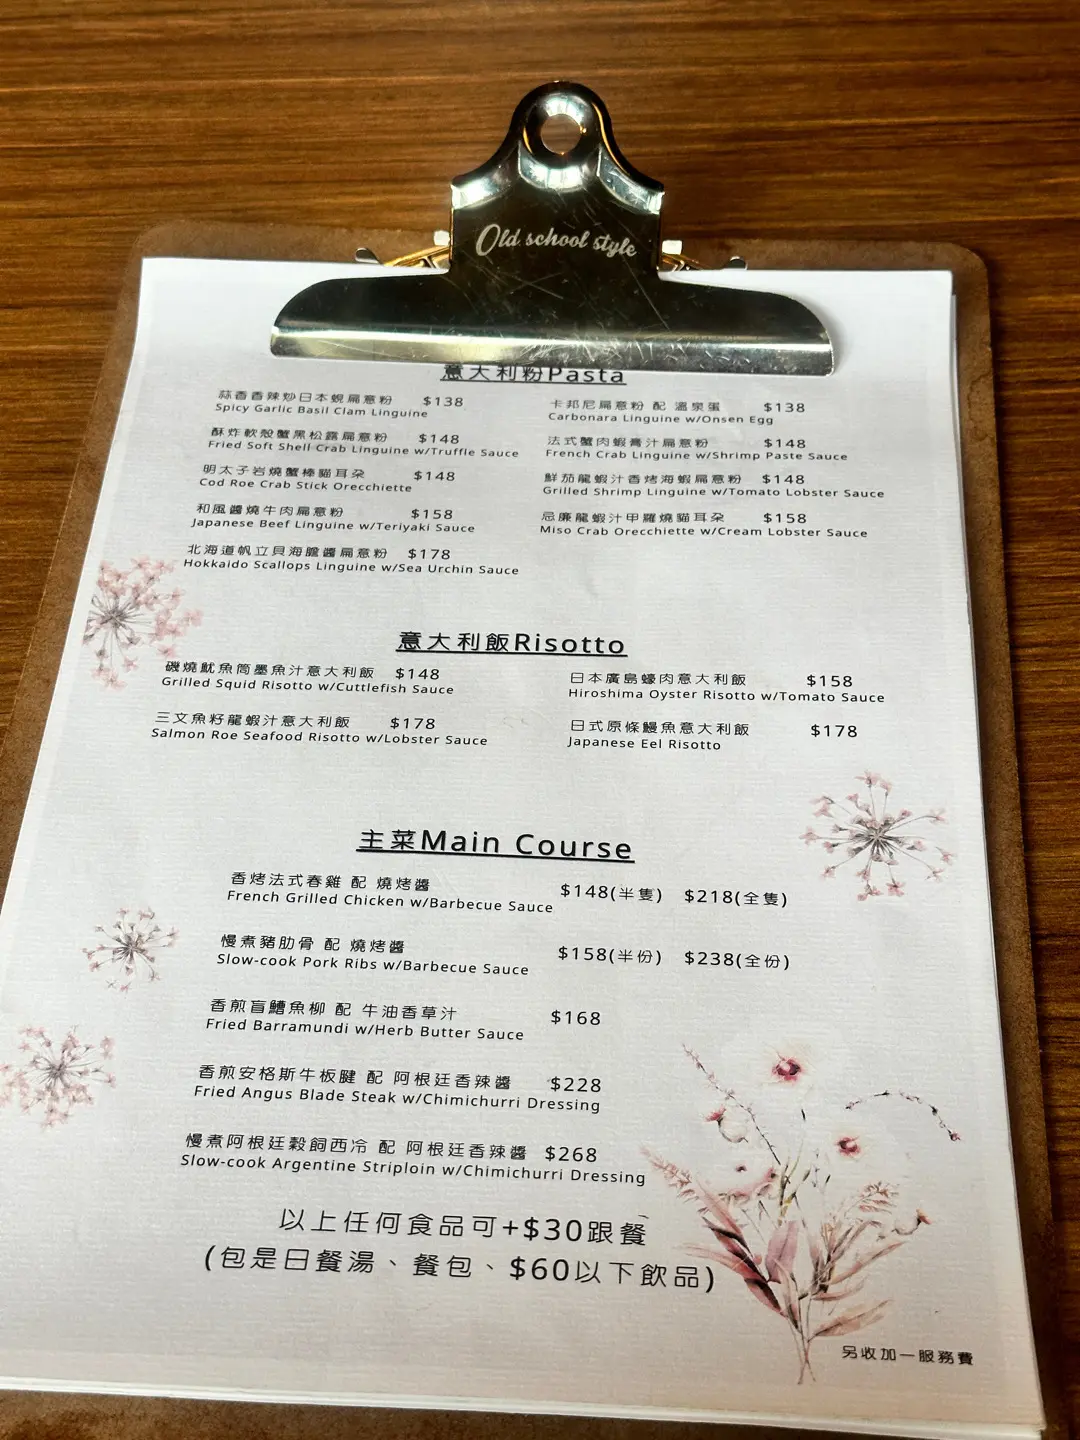 Old school style
意大利粉Pasta
蒜香香辣炒日本蜆扁意粉 $138
Spicy Garlic Basil Clam Linguine
酥炸軟殼蟹黑松露扁意粉 $148
Fried Soft Shell Crab Linguine w/Truffle Sauce
明太子岩燒蟹棒貓耳朶 $148
Cod Roe Crab Stick Orecchiette
和風醬燒牛肉扁意粉 $158
Japanese Beef Linguine w/Teriyaki Sauce
北海道帆立貝海膽醬扁意粉 $178
Hokkaido Scallops Linguine w/Sea Urchin Sauce
卡邦尼扁意粉 配 溫泉蛋 $138
Carbonara Linguine w/Onsen Egg
法式蟹肉蝦膏汁扁意粉 $148
French Crab Linguine w/Shrimp Paste Sauce
鮮茄龍蝦汁香烤海蝦扁意粉 $148
Grilled Shrimp Linguine w/Tomato Lobster Sauce
忌廉龍蝦汁甲羅燒貓耳朶 $158
Miso Crab Orecchiette w/Cream Lobster Sauce
意大利飯Risotto
磯燒魷魚筒墨魚汁意大利飯 $148
Grilled Squid Risotto w/Cuttlefish Sauce
三文魚籽龍蝦汁意大利飯 $178
Salmon Roe Seafood Risotto w/Lobster Sauce
日本廣島蠔肉意大利飯 $158
Hiroshima Oyster Risotto w/Tomato Sauce
日式原條鰻魚意大利飯 $178
Japanese Eel Risotto
主菜Main Course
香烤法式春雞 配 燒烤醬 $148(半隻) $218(全隻)
French Grilled Chicken w/Barbecue Sauce
慢煮豬肋骨 配 燒烤醬 $158(半份) $238(全份)
Slow-cook Pork Ribs w/Barbecue Sauce
香煎盲鰽魚柳 配 牛油香草汁 $168
Fried Barramundi w/Herb Butter Sauce
香煎安格斯牛板腱 配 阿根廷香辣醬 $228
Fried Angus Blade Steak w/Chimichurri Dressing
慢煮阿根廷穀飼西冷 配 阿根廷香辣醬 $268
Slow-cook Argentine Striploin w/Chimichurri Dressing
以上任何食品可+$30跟餐
(包是日餐湯、餐包、$60以下飲品)
另收加一服務費